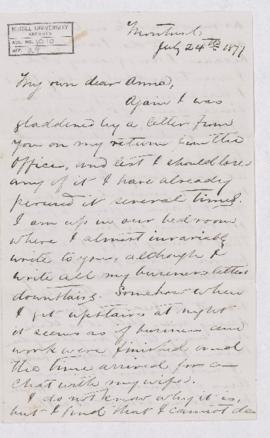 McGILL UNIVERSITY
ARCHIVES
ACC. NO.
REF.
Montreal
July 24th 1877
My own dear Anna,
Again I was
gladdened by a letter from
you on my return from the
Office, and lest I should lose
any of it I have already
perused it several times.
I am up in our bed room
where I almost invariably
write to you, although I
write all my business letters
downstairs. Somehow when
I get upstairs at night
it seems as if business and
work were finished and
the time arrived for a
chat with my wife.
I do not know why it is,
but I find that I cannot do